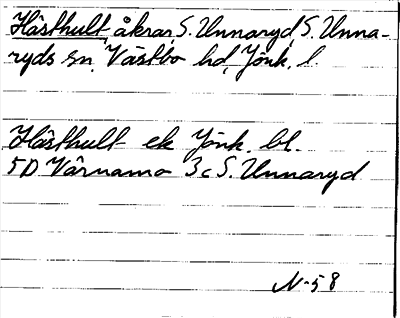 Hästhult, åkrar, S. Unnaryd S. Unna-
ryds sn, Västbo hd, Jönk. l.
Hästhult ek Jönk. bl.
5D Värnamo 3c S. Unnaryd
N-58